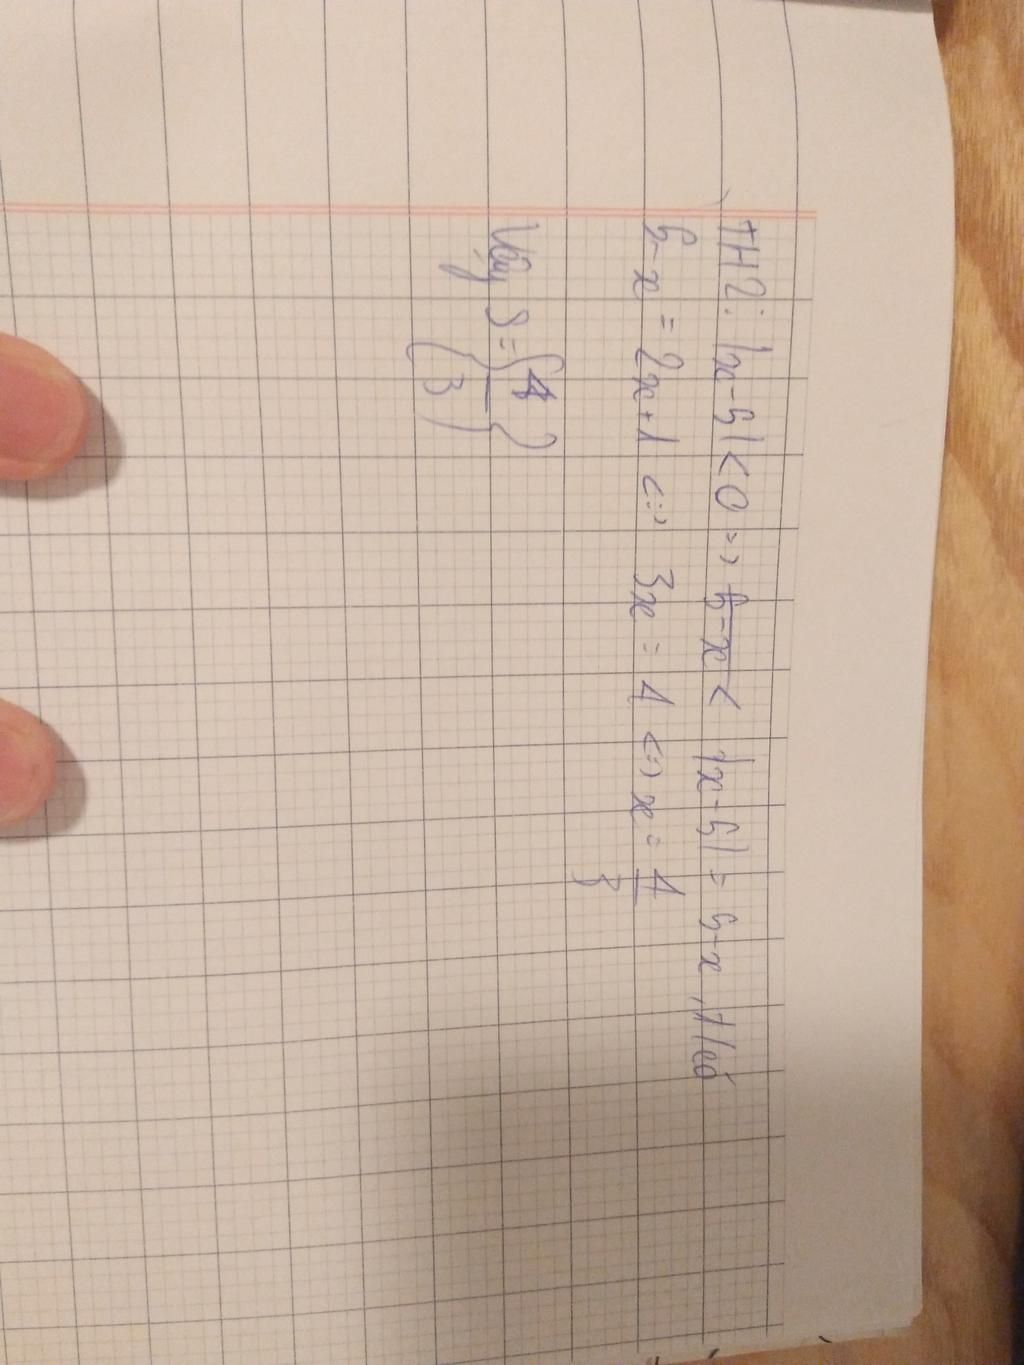 TH2: |x-5|<0 => 5-x< |x-5| = 5-x, Nếu
5-x = 2x+1 <=> 3x = 4 <=> x = 4/3
Vậy S = {4/3}